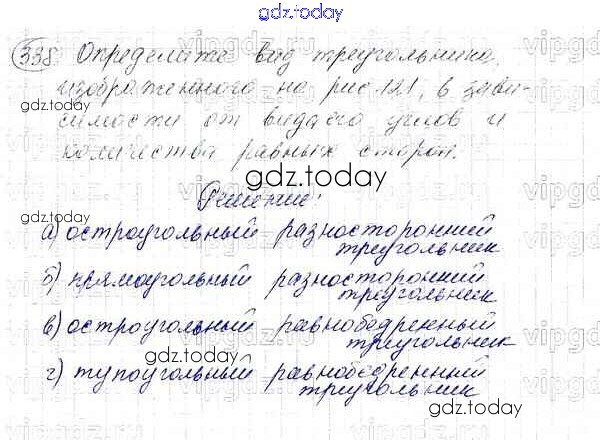 gdz.today
338 Определите вид треугольника,
изображенного на рис. 121, в зави-
gdz.today
симости от вида его углов и
количества равных сторон.
gdz.today
Решение:
а) остроугольный разносторонний
треугольник
б) прямоугольный разносторонний
треугольник
в) остроугольный - равнобедренный
треугольник
gdz.today
г) тупоугольный равнобедренный
треугольник
gdz.today